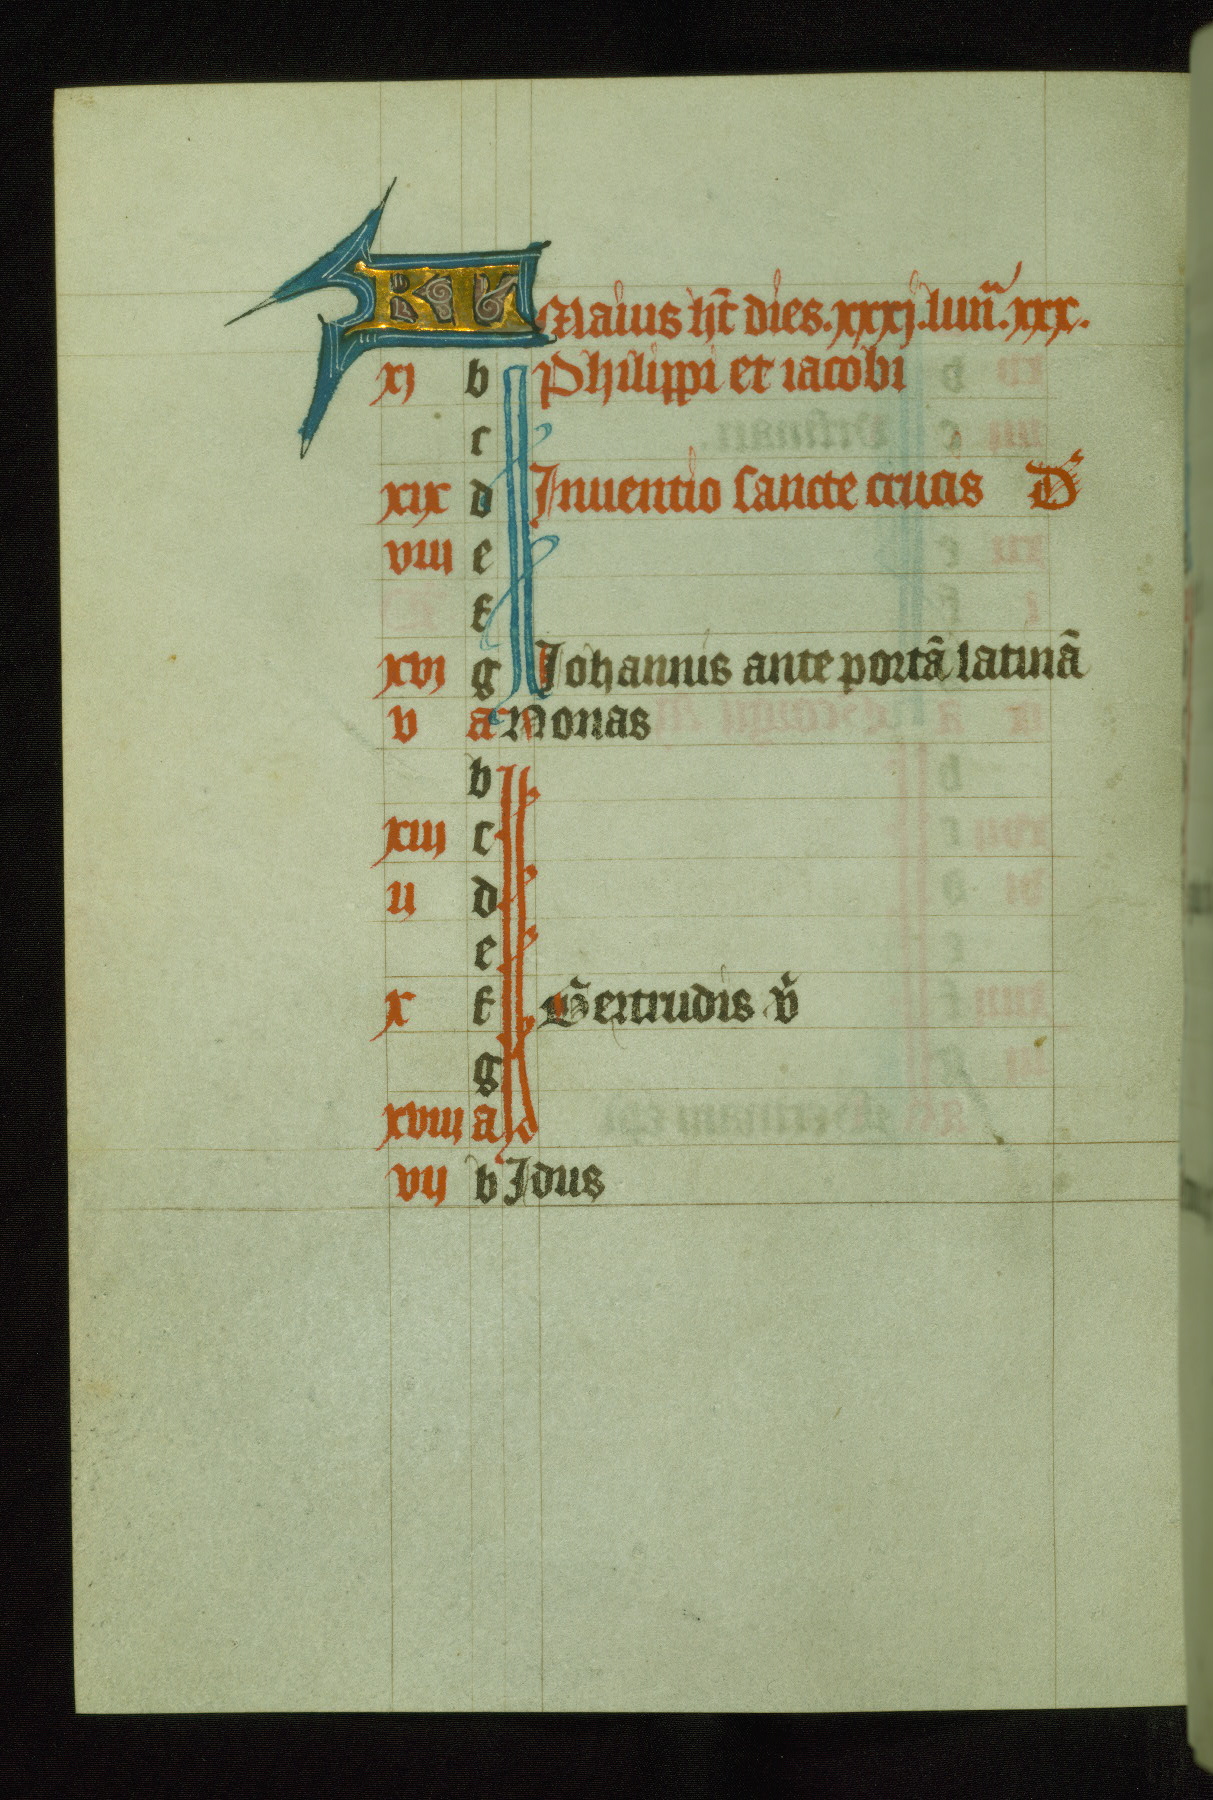 KL Maius ht̄ dies.xxxj.lun̄.xxx.
xj b Philippi et iacobi
c
xix d Inuentio sancte crucis D
viii e
f
xvj g Johannis ante portā latinā
v a Nonas
b
xiij c
ij d
e
x f Gertrudis v̄
g
xviii a
vij b Idus